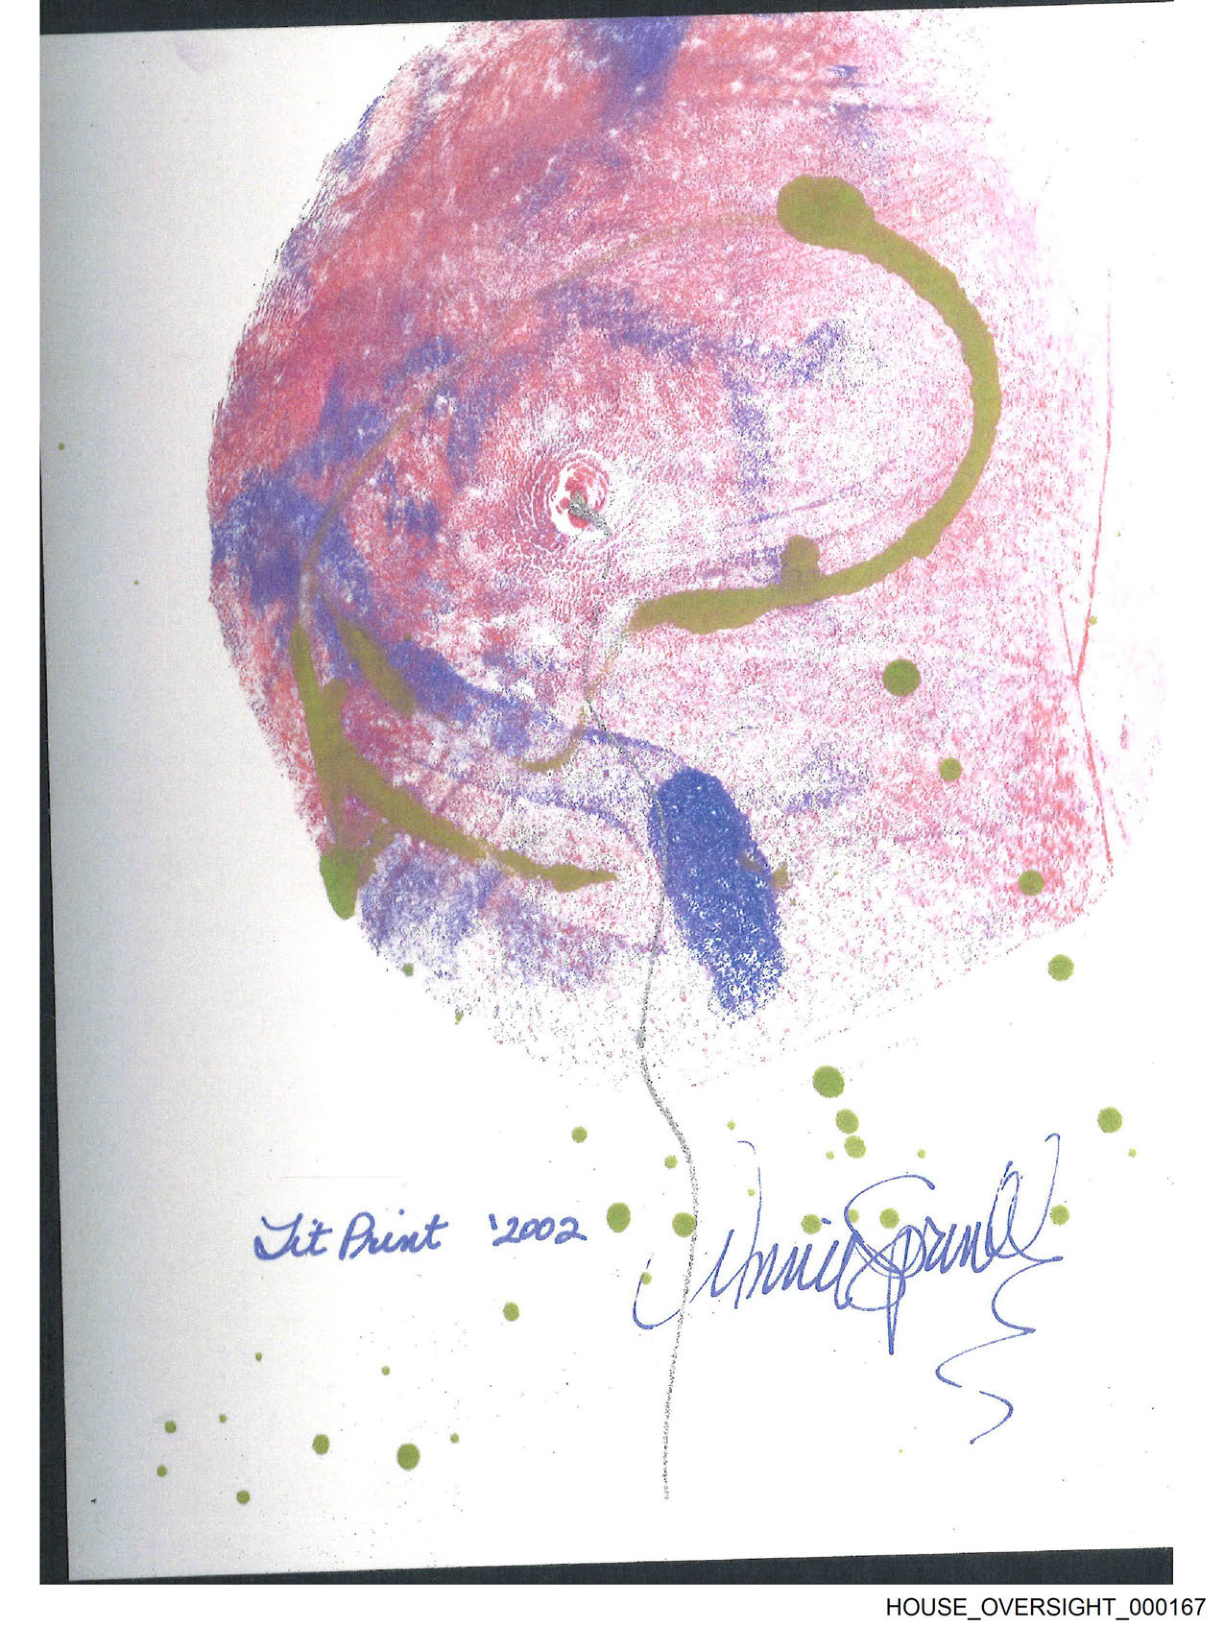 Tit Print '2002
Annie Sprinkle
HOUSE_OVERSIGHT_000167